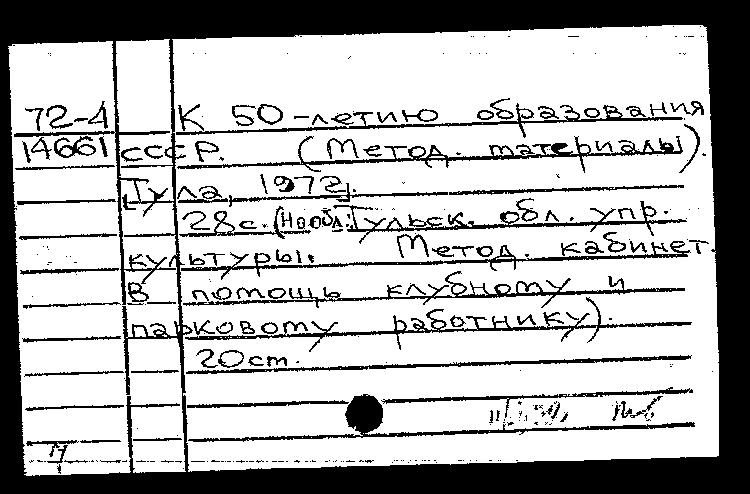 72-4 К 50-летию образования
14661 СССР. (Метод. материалы).
[Тула, 1972].
28с. (На обл.: Тульск. обл. упр.
культуры. Метод. кабинет.
В помощь клубному и
парковому работнику).
20 ст.